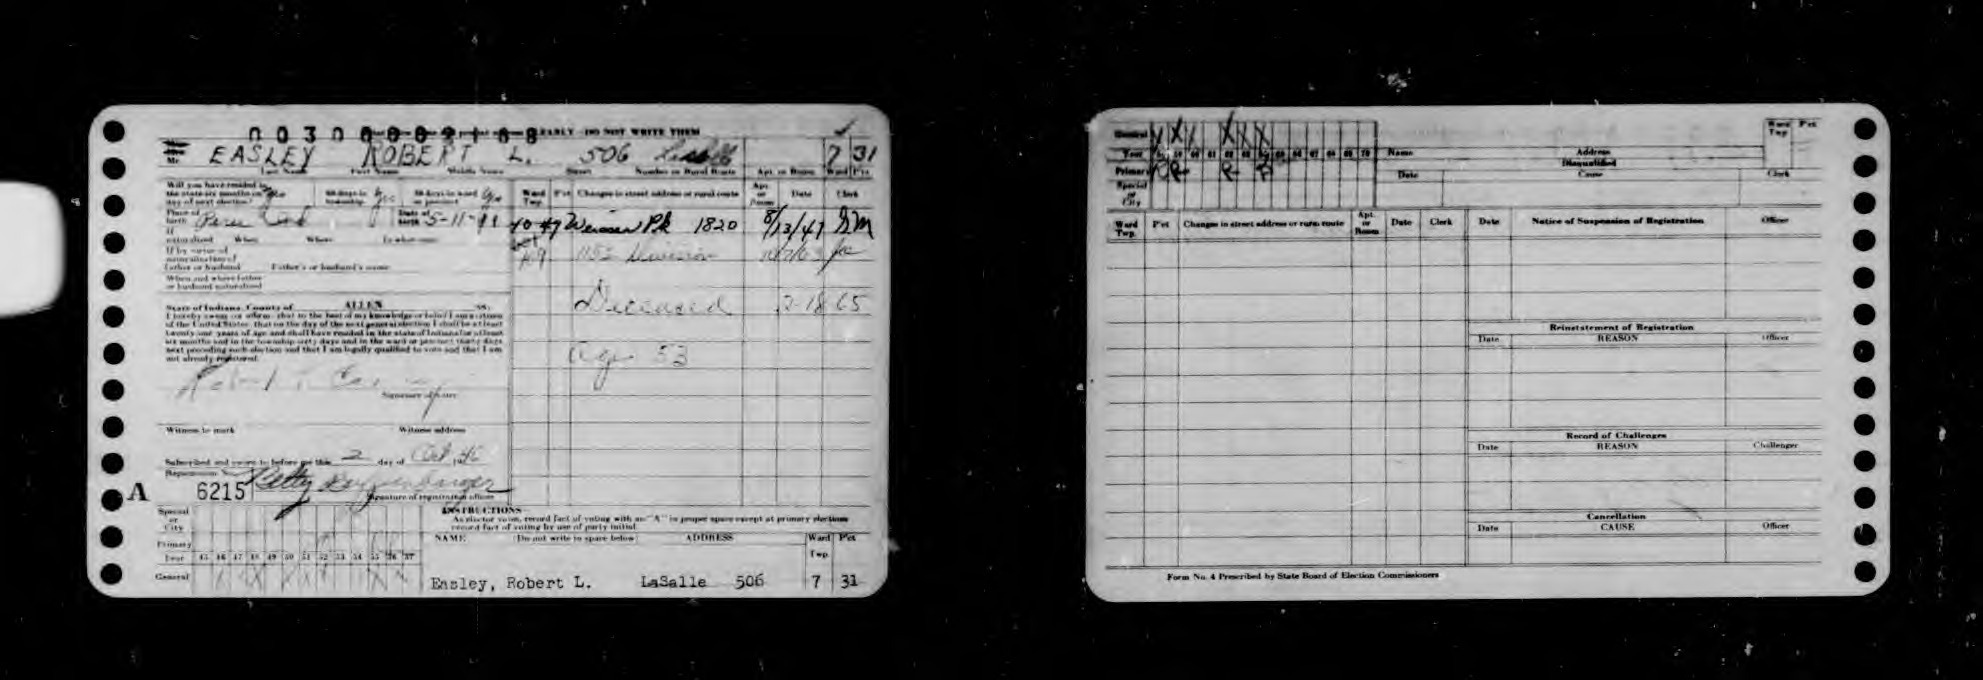 EARLY - DO NOT WRITE THEM
Mr. EASLEY ROBERT L. 506 7 31
Last Name First Name Middle Name Street Number or Rural Route Apt. or Room Ward Pct
Will you have resided in
the state six months on
day of next election? Yes 60 days in township Yes 30 days in ward or precinct Yes
Ward Twp. Pct Changes in street address or rural route Apt. or Room Date Clerk
Place of birth Peru Ind Date of birth 5-11-11
10 47 Weisser Pk 1820 8/13/47
If naturalized When Where In what name
If by virtue of
naturalization of
father or husband Father's or husband's name
1152 Division
When and where father
or husband naturalized
Deceased 2-18 65
Age 53
State of Indiana, County of ALLEN ss:
I hereby swear or affirm that to the best of my knowledge or belief I am a citizen
of the United States, that on the day of the next general election I shall be at least
twenty-one years of age and shall have resided in the state of Indiana for at least
six months and in the township sixty days and in the ward or precinct thirty days
next preceding such election and that I am legally qualified to vote and that I am
not already registered.
Signature of voter
Witness to mark Witness address
Subscribed and sworn to before me this 2 day of Oct 1946
Registration No.
A 6215 Betty
Signature of registration officer
Special or City
Primary
Year 45 46 47 48 49 50 51 52 53 54 55 56 57
General
INSTRUCTIONS
As elector votes, record fact of voting with an "A" in proper space except at primary elections
record fact of voting by use of party initial.
NAME (Do not write in space below) ADDRESS Ward Twp. Pct
Easley, Robert L. LaSalle 506 7 31
General X X
Year 58 59 60 61 62 63 64 65 66 67 68 69 70
Primary R R R
Special or City
Name Address
Disqualified
Date Cause Clerk
Ward Twp Pct
Ward Twp. Pct Changes in street address or rural route Apt. or Room Date Clerk
Date Notice of Suspension of Registration Officer
Reinstatement of Registration
Date REASON Officer
Record of Challenges
Date REASON Challenger
Cancellation
Date CAUSE Officer
Form No. 4 Prescribed by State Board of Election Commissioners